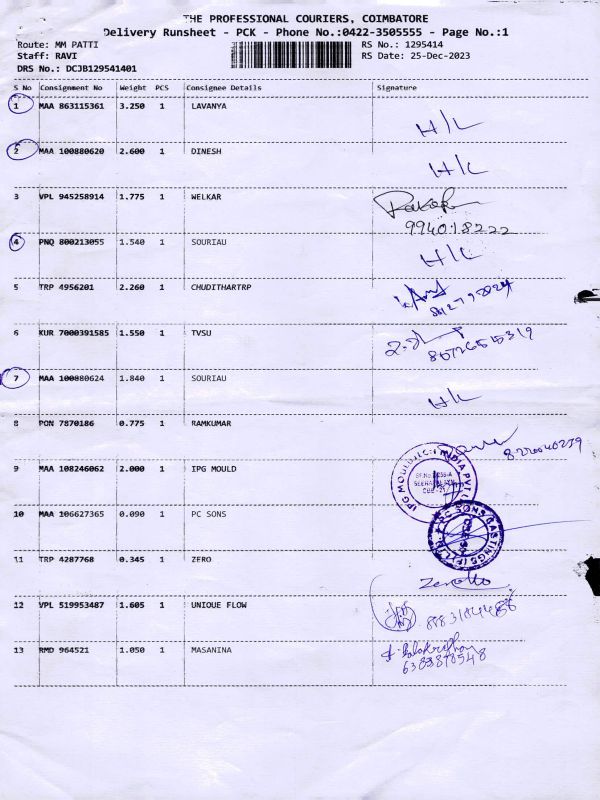 THE PROFESSIONAL COURIERS, COIMBATORE
Delivery Runsheet - PCK - Phone No.:0422-3505555 - Page No.:1
Route: MM PATTI RS No.: 1295414
Staff: RAVI RS Date: 25-Dec-2023
DRS No.: DCJB129541401
S No Consignment No Weight PCS Consignee Details Signature
1 MAA 863115361 3.250 1 LAVANYA H/L
2 MAA 100880620 2.600 1 DINESH H/L
3 VPL 945258914 1.775 1 WELKAR
994018222
4 PNQ 800213055 1.540 1 SOURIAU H/L
5 TRP 4956201 2.260 1 CHUDITHARTRP
6 KUR 7000391585 1.550 1 TVSU
7 MAA 100880624 1.840 1 SOURIAU H/L
8 PON 7870186 0.775 1 RAMKUMAR
9 MAA 108246062 2.000 1 IPG MOULD
10 MAA 106627365 0.090 1 PC SONS
11 TRP 4287768 0.345 1 ZERO
12 VPL 519953487 1.605 1 UNIQUE FLOW
13 RMD 964521 1.050 1 MASANINA